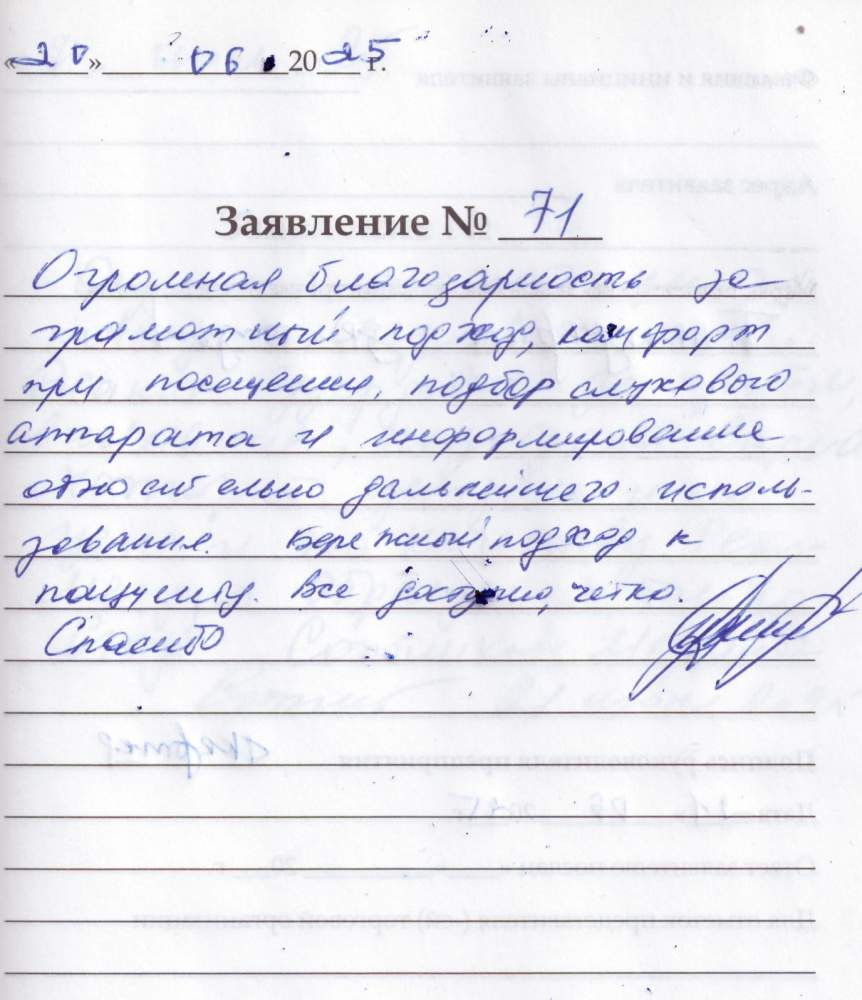 «20» 06. 2025 г.
Заявление № 71
Огромная благодарность за
грамотный подход, комфорт
при посещении, подбор слухового
аппарата и информирование
относительно дальнейшего исполь-
зования. Бережный подход к
пациенту. Все доступно, четко.
Спасибо